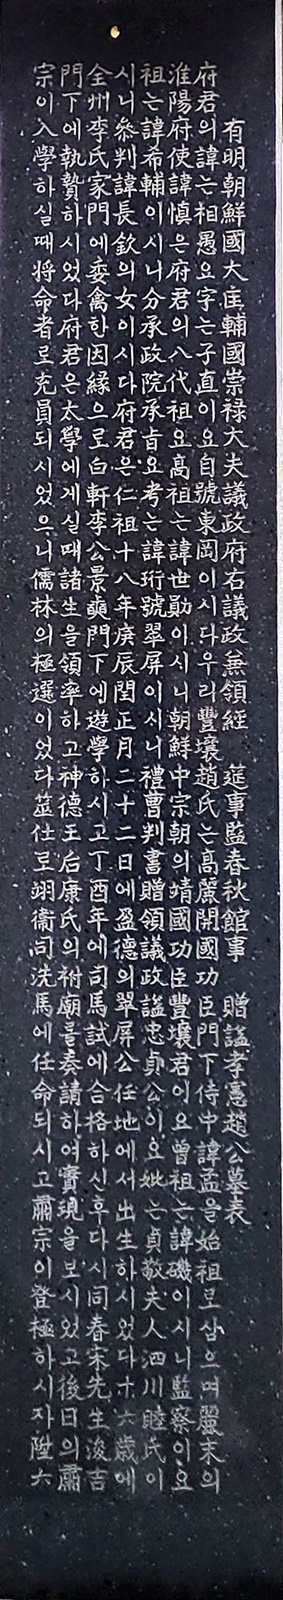 有明朝鮮國大匡輔國崇禄大夫議政府右議政兼領經 筵事監春秋館事 贈諡孝憲趙公墓表
府君의諱는相愚요字는子直이요自號東岡이시다우리豐壤趙氏는高麗開國功臣門下侍中諱孟을始祖로삼으며麗末의
淮陽府使諱愼은府君의八代祖요高祖는諱世勛이시니朝鮮中宗朝의靖國功臣豐壤君이요曾祖는諱磯이시니監察이요
祖는諱希輔이시니分承政院承旨요考는諱珩號翠屏이시니禮曹判書贈領議政諡忠貞公이요妣는貞敬夫人泗川睦氏이
시니參判諱長欽의女이시다府君은仁祖十八年庚辰閏正月二十二日에盈德의翠屏公任地에서出生하시었다十六歲에
全州李氏家門에委禽한因緣으로白軒李公景奭門下에遊學하시고丁酉年에司馬試에合格하신후다시同春宋先生浚吉
門下에執贄하시었다府君은太學에게실때諸生을領率하고神德王后康氏의祔廟를奏請하여實現을보시있고後日의肅
宗이入學하실때將命者로充員되시었으니儒林의極選이었다筮仕로翊衞司洗馬에任命되시고肅宗이登極하시자陞六